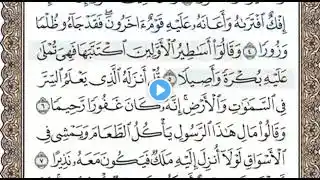 إِفْكٌ ٱفْتَرَىٰهُ وَأَعَانَهُۥ عَلَيْهِ قَوْمٌ ءَاخَرُونَ ۖ فَقَدْ جَآءُو ظُلْمًا
وَزُورًا ٤ وَقَالُوٓا۟ أَسَٰطِيرُ ٱلْأَوَّلِينَ ٱكْتَتَبَهَا فَهِىَ تُمْلَىٰ
عَلَيْهِ بُكْرَةً وَأَصِيلًا ٥ قُلْ أَنزَلَهُ ٱلَّذِى يَعْلَمُ ٱلسِّرَّ
فِى ٱلسَّمَٰوَٰتِ وَٱلْأَرْضِ ۚ إِنَّهُۥ كَانَ غَفُورًا رَّحِيمًا ٦
وَقَالُوا۟ مَالِ هَٰذَا ٱلرَّسُولِ يَأْكُلُ ٱلطَّعَامَ وَيَمْشِى فِى
ٱلْأَسْوَاقِ ۙ لَوْلَآ أُنزِلَ إِلَيْهِ مَلَكٌ فَيَكُونَ مَعَهُۥ نَذِيرًا ٧